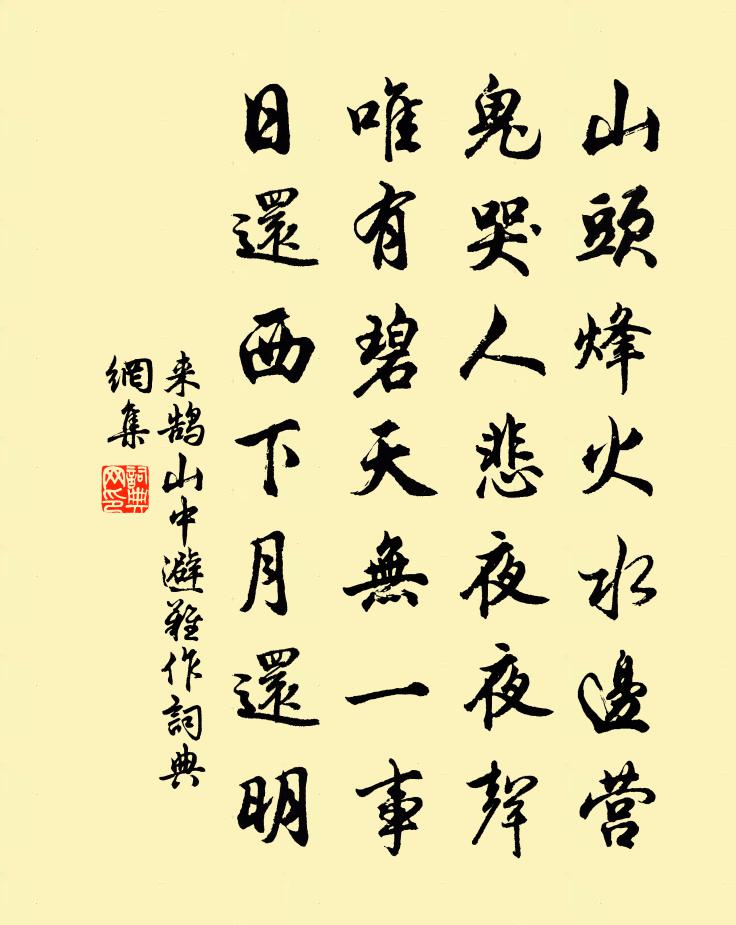 山頭烽火水邊营
鬼哭人悲夜夜聲
唯有碧天無一事
日還西下月還明
来鹄山中避難作詞典
網集
詞典网印